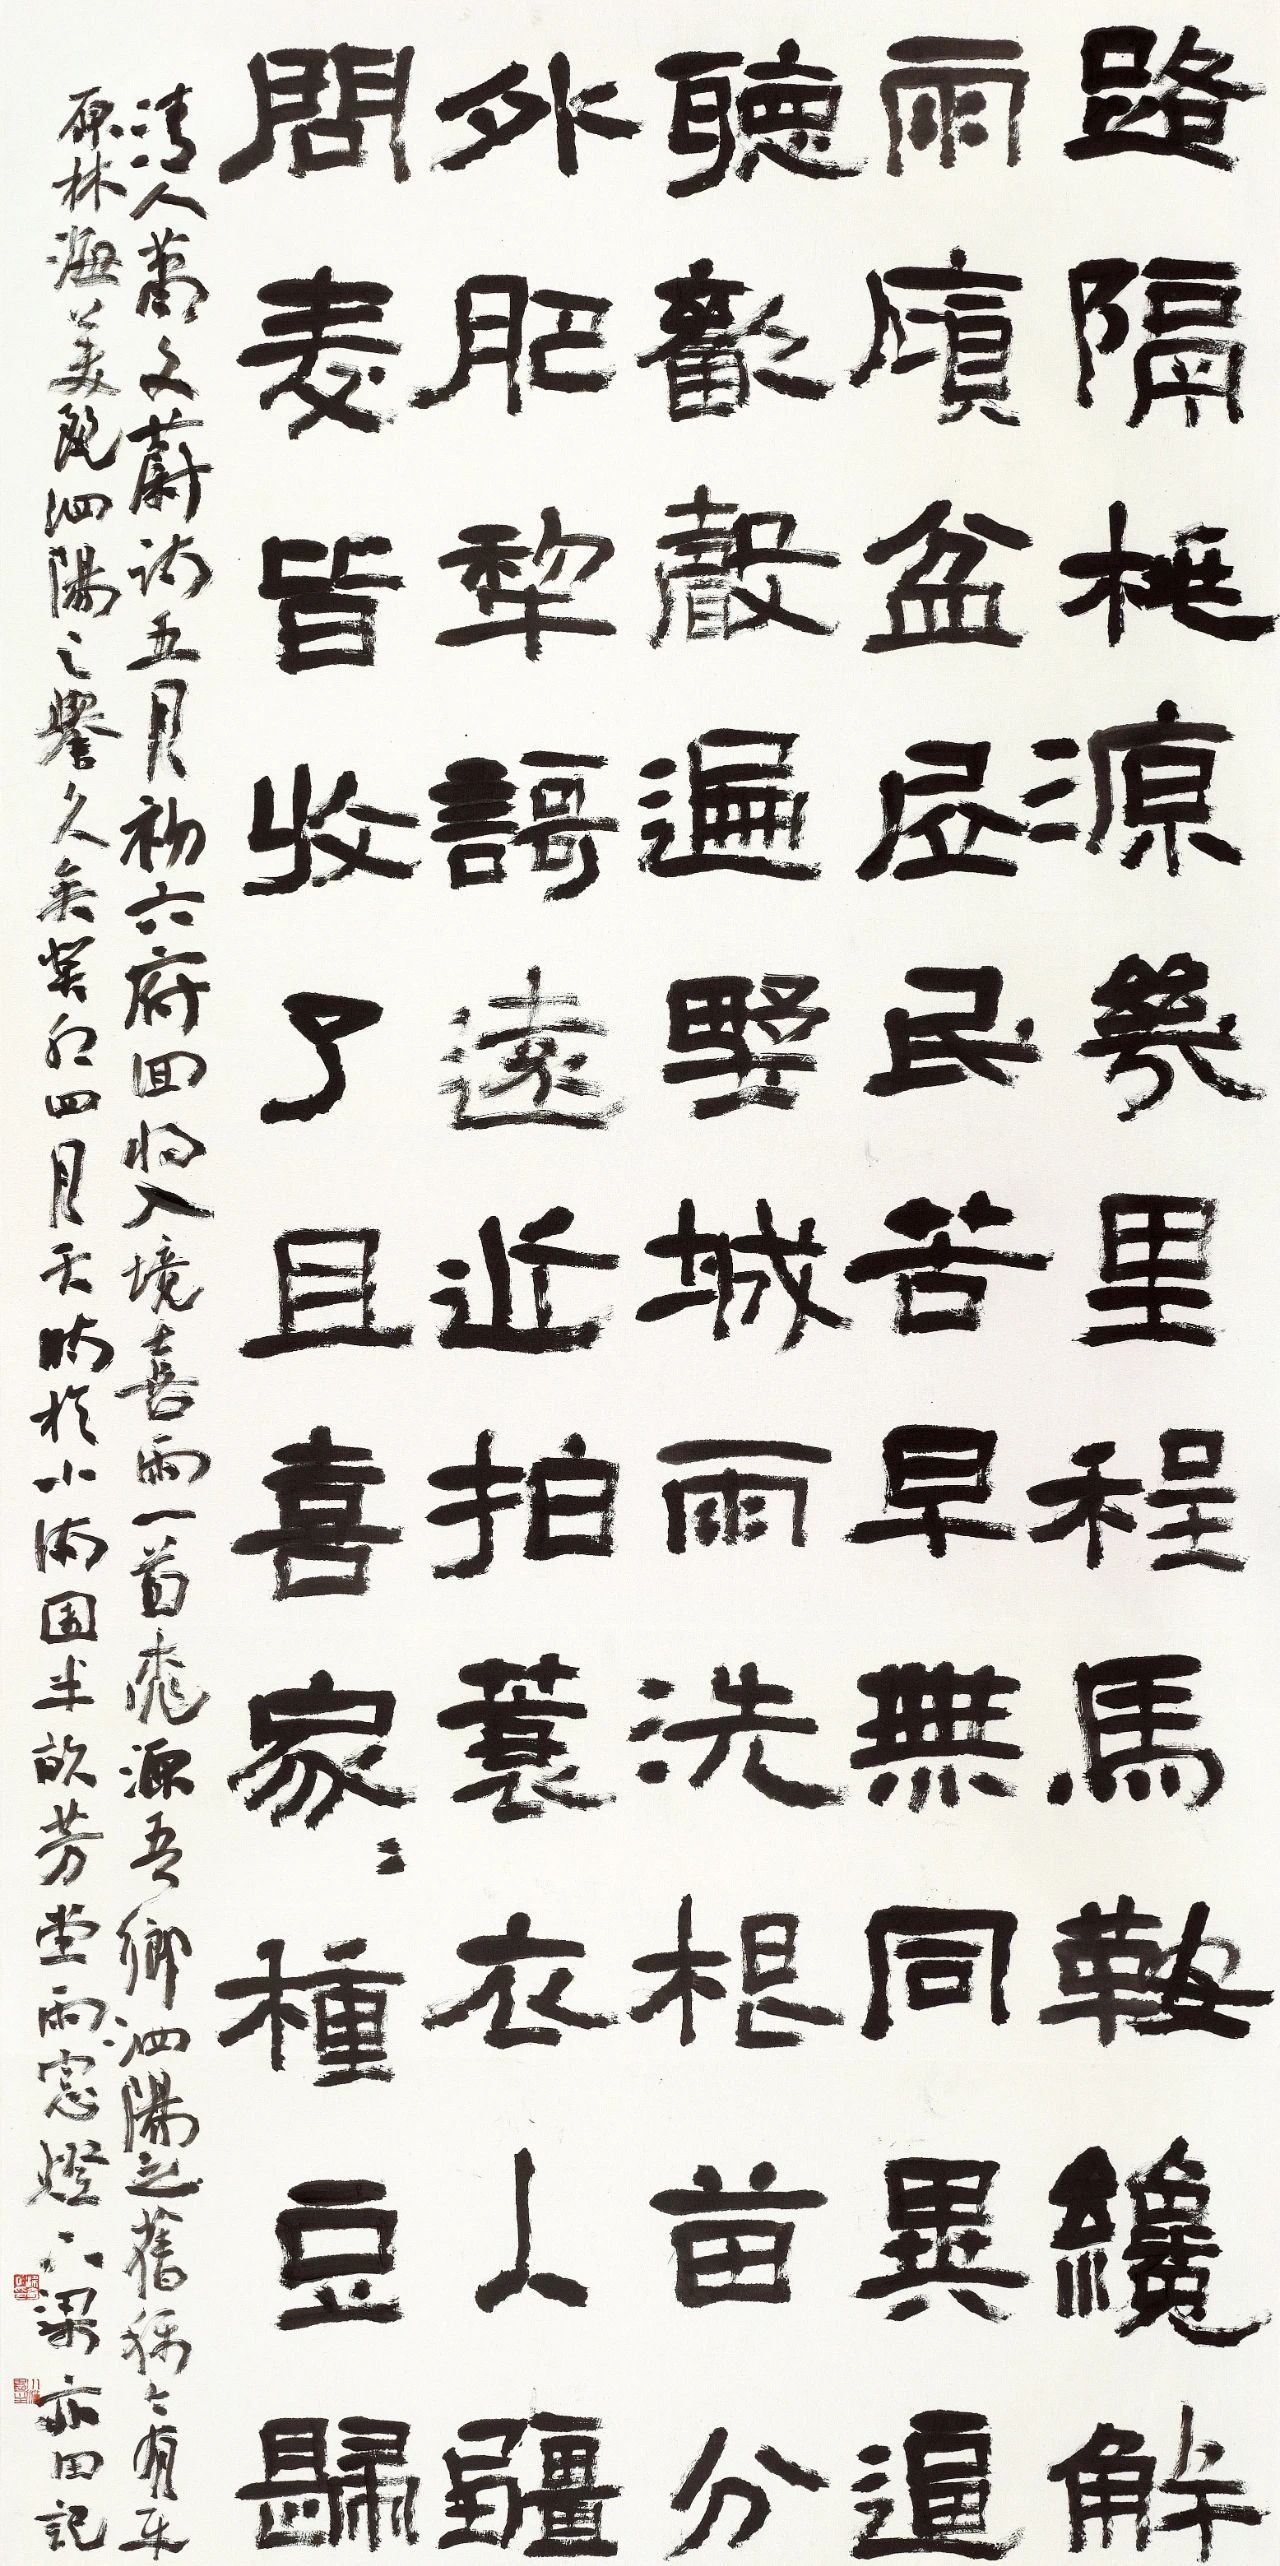 路隔桃源幾里程馬鞍纔解
雨傾盆居民苦旱無同異道
聽歡聲遍野城雨洗根苗分
外肥犁謌遠近拍蓑衣人疆
問麥皆收了且喜家〻種豆歸
清人蕭文蔚詩五月初六府回將入境喜雨一首桃源吾鄉泗陽之舊稱今有平
原林海美酒泗陽之譽久矣癸卯四月天晴於小滿園半畝芳堂雨窓燈下梁亦田記